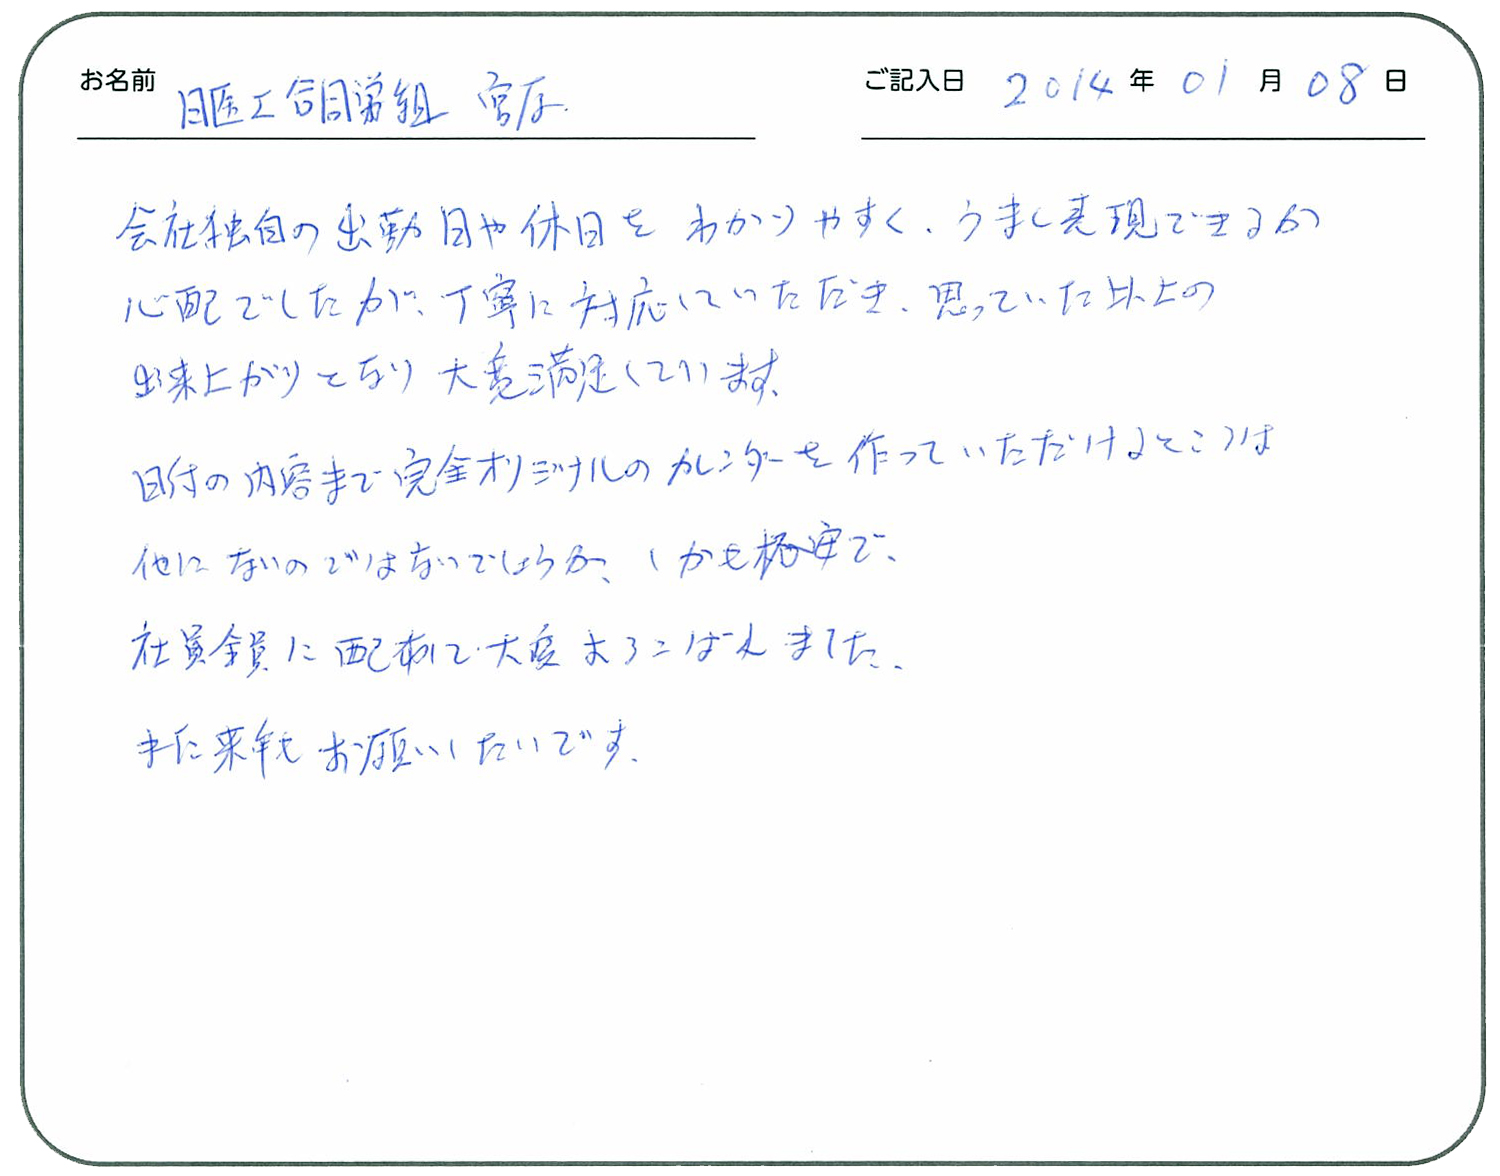 お名前 日医工合同労組 宮 ご記入日 2014年01月08日
会社独自の出勤日や休日をわかりやすく、うまく表現できるか
心配でしたが、丁寧に対応していただき、思っていた以上の
出来上がりとなり大変満足しています。
日付の内容まで完全オリジナルのカレンダーを作っていただけるところは
他にないのではないでしょうか、しかも格安で、
社員全員に配布して大変よろこばれました。
また来年もお願いしたいです。